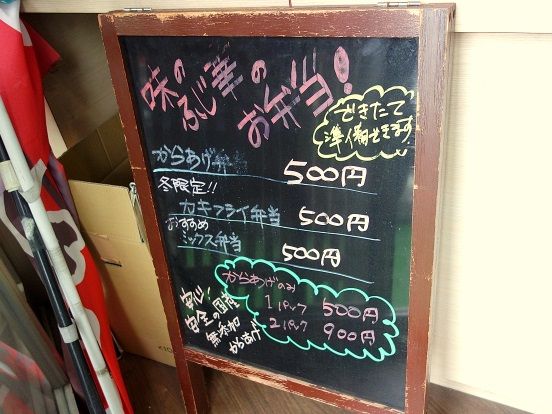 味の
ふじ華の
お弁当!
できたて
準備できます
からあげ弁当 500円
冬限定!!
カキフライ弁当 500円
おすすめ
ミックス弁当 500円
からあげのみ
1パック 500円
2パック 900円
安心!
安全の国産
無添加
からあげ